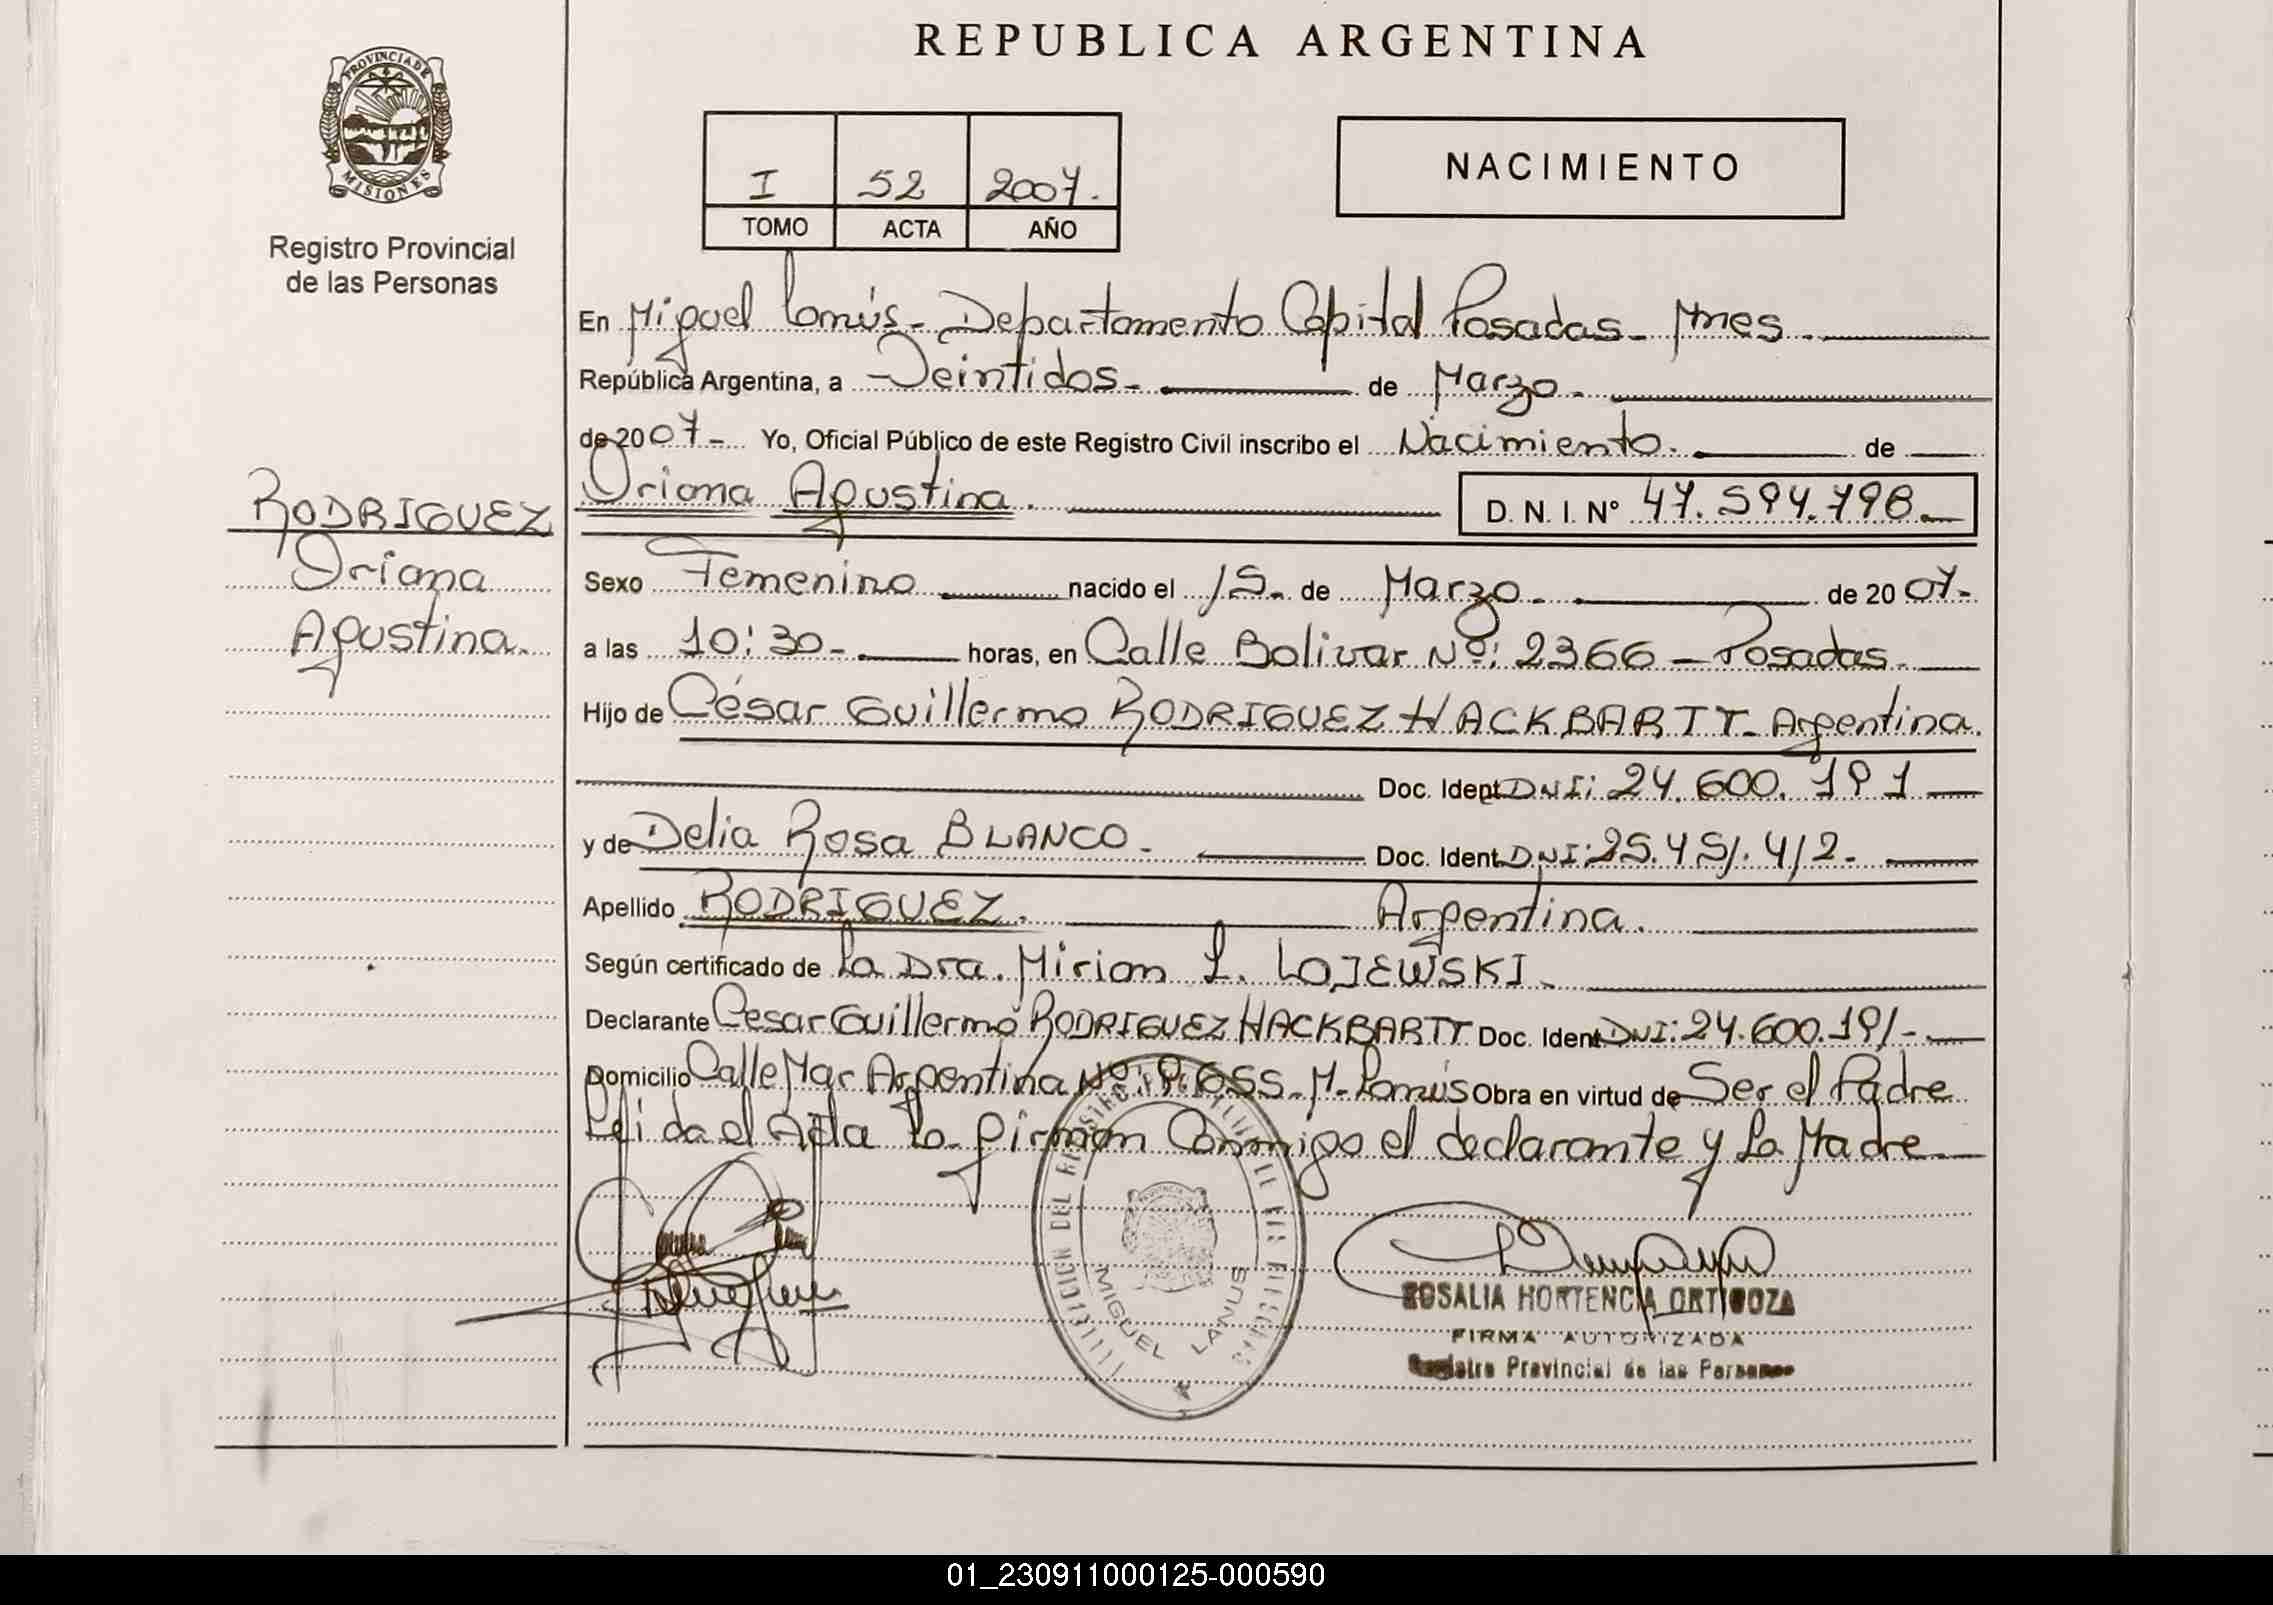 REPUBLICA ARGENTINA
PROVINCIA DE
MISIONES
Registro Provincial
de las Personas
I 52 2007.
TOMO ACTA AÑO
NACIMIENTO
En Miguel Lanús - Departamento Capital Posadas - Mnes.
República Argentina, a Veintidos - de Marzo -
de 2007 - Yo, Oficial Público de este Registro Civil inscribo el Nacimiento. de
Oriana Agustina. D. N. I. Nº 47.594.798 -
RODRIGUEZ
Oriana
Agustina.
Sexo Femenino nacido el 15 - de Marzo - de 2007 -
a las 10:30 - horas, en Calle Bolivar Nº: 2366 - Posadas
Hijo de César Guillermo RODRIGUEZ HACKBARTT - Argentina.
Doc. Ident. DNI: 24.600.191
y de Delia Rosa BLANCO - Doc. Ident. DNI: 25.451.412 -
Apellido RODRIGUEZ. Argentina.
Según certificado de La Dra. Mirian L. LOJEWSKI -
Declarante Cesar Guillermo RODRIGUEZ HACKBARTT Doc. Ident. DNI: 24.600.191 -
Domicilio Calle Mar Argentina Nº: 9.655 - M. Lanús Obra en virtud de Ser el Padre
Leida el Acta La firman Conmigo el declarante y La Madre
MIGUEL LANUS
ROSALIA HORTENCIA ORTIGOZA
FIRMA AUTORIZADA
Registro Provincial de las Personas
01_230911000125-000590